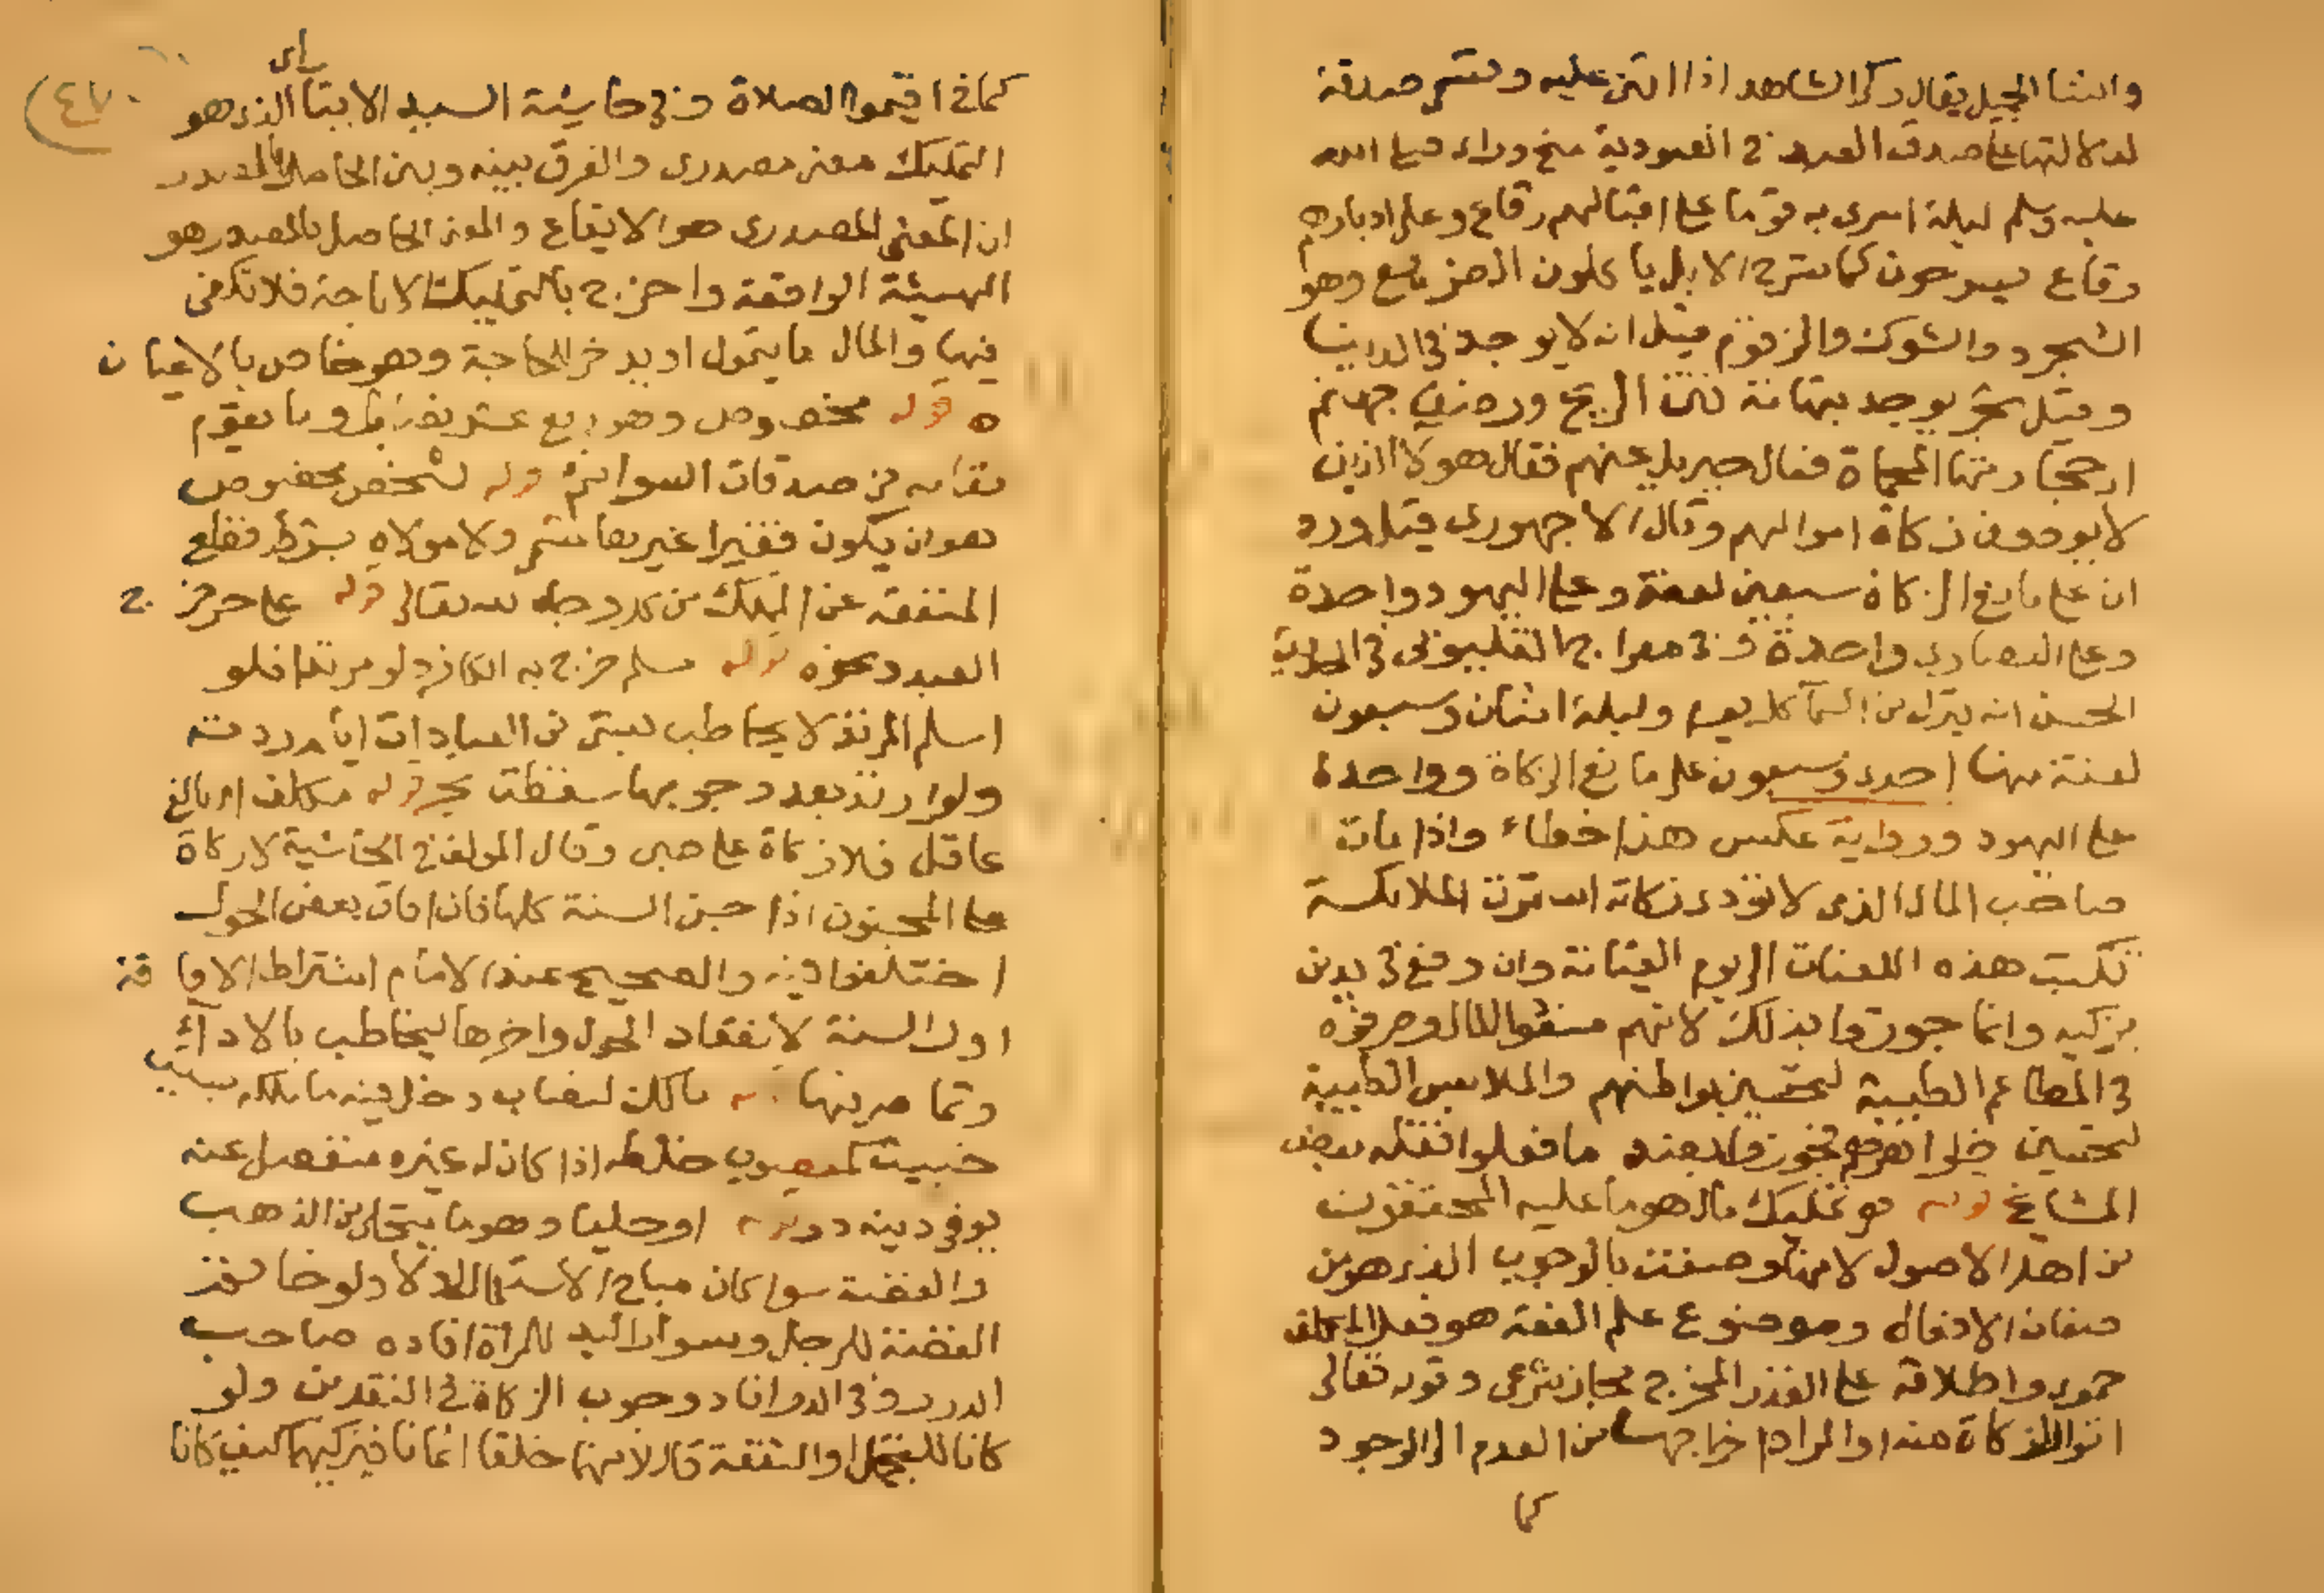 والثنا الجميل يقال زكى الشاهد اذا اثنى عليه وتسمى صدقة
لدلالتها على صدق العبد في العبودية وراى صلى الله
عليه وسلم ليلة اسرى به قوما على اقبالهم رقاع وعلى ادبارهم
رقاع يسرحون كما تسرح الابل ياكلون الضريع وهو
الشجر والشوك والزقوم قيل انه لا يوجد في الدنيا
وقيل شجر يوجد بتهامة نتن الريح ورضف جهنم
اي حجارتها المحماة فقال جبريل عنهم فقال هولا الذين
لا يودون زكاة اموالهم وقال الاجهوري قيل ورد
ان على مانع الزكاة سبعين لعنة وعلى اليهود واحدة
وعلى النصارى واحدة وفي معراج القليوبي في
الحسن انه ينزل من السما كل يوم وليلة اثنان وسبعون
لعنة منها احد وسبعون على مانع الزكاة وواحدة
على اليهود ورواية عكس هذا خطاء واذا مات
صاحب المال الذي لا تؤدى زكاته استمرت الملايكة
تكتب هذه اللعنات الى يوم القيامة وان وقع في يد من
يزكيه وانما جوزوا بذلك لانهم منعوا المال وصرفوه
في المطاعم الطيبة لتحسين بواطنهم والملابس الطيبة
لتحسين ظواهرهم فجوزوا بضد ما فعلوا نقله بعض
المشايخ قوله هو تمليك مال هو ما عليه المحققون
من اهل الاصول لانها وصفت بالوجوب الذي هو من
صفات الافعال وموضوع علم الفقه هو فعل المكلف
حموي واطلاقه على القدر المخرج مجاز شرعي وقوله تعالى
اتوا الزكاة منه اذ المراد اخراجها من العدم الى الوجود
كما
كما في اقيموا الصلاة وفي حاشية السيد الايتا اي الذي هو
التمليك معنى مصدري والفرق بينه وبين الحاصل بالمصدر
ان المعنى المصدري هو الايقاع والمعنى الحاصل بالمصدر هو
الهيئة الواقعة واخرج بالتمليك الاباحة فلا تكفي
فيها والمال ما يتمول او يدخر للحاجة وهو خاص بالاعيان
ه قوله مخصوص وهو ربع عشر نصاب وما يقوم
مقامه من صدقات السوائم قوله لشخص مخصوص
هو ان يكون فقيرا غير هاشمي ولا مولاه بشرط قطع
المنفعة عن الملك من كل وجه لله تعالى قوله على حر خرج
العبد ونحوه قوله مسلم خرج به الكافر ولو مرتدا فلو
اسلم المرتد لا يخاطب بشي من العبادات ايام ردته
ولو ارتد بعد وجوبها سقطت بحر قوله مكلف اي بالغ
عاقل فلا زكاة على صبي وقال المولف في الحاشية لا زكاة
على المجنون اذا جن السنة كلها فان افاق بعض الحول
اختلفوا فيه والصحيح عند الامام اشتراط الافاقة
اول السنة لانعقاد الحول واخرها ليخاطب بالاداء
وتمامه فيها قوله مالك لنصاب دخل فيه ما ملكه بسبب
خبيث كمغصوب خلطه اذا كان له غيره منفصل عنه
يوفي دينه در قوله او حليا وهو ما يتحلى من الذهب
والفضة سواء كان مباح الاستعمال او لا ولو خاتم
الفضة للرجل وسوار اليد للمراة افاده صاحب
الدرر وفي الدر افاد وجوب الزكاة في النقدين ولو
كانا للتجمل او النفقة قال لانهما خلقا اثمانا فيزكيهما كيف كانا
راى
٤٧